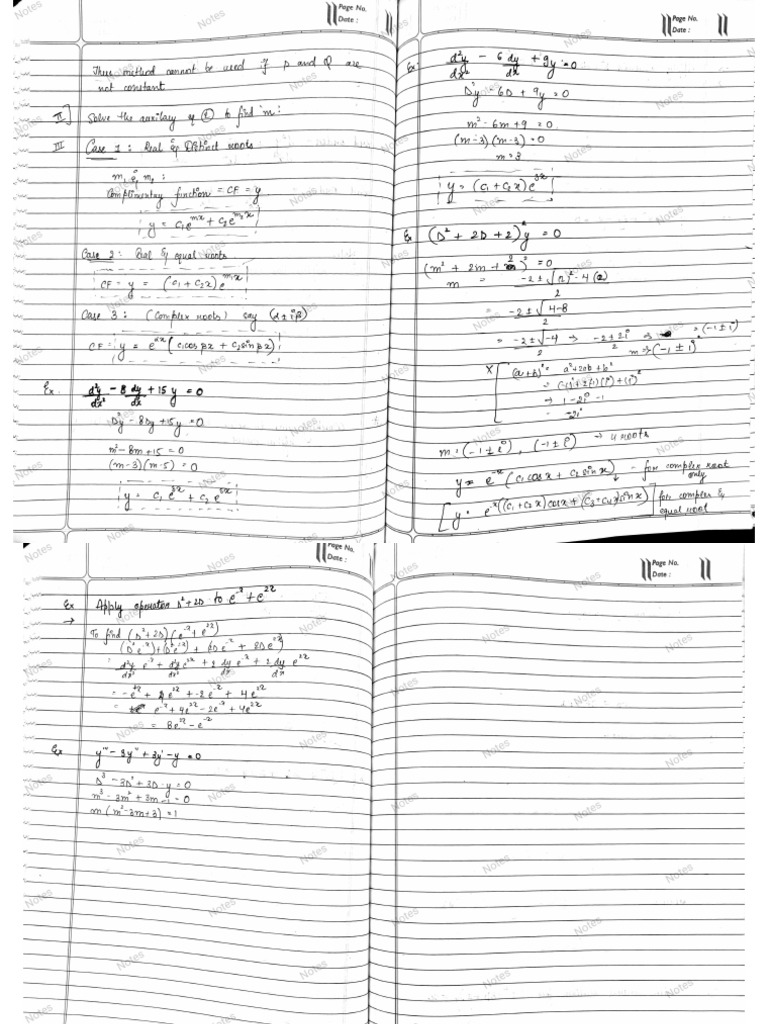 Page No.
Date :
This method cannot be used if P and Q are
not constant
II] Solve the auxilary eq ① to find 'm':
III Case 1 : Real & Distinct roots
m₁ & m₂ :
Complimentary function = CF = y
y = c₁e^mx + c₂e^m₂x
Case 2 : Real & equal roots
CF = y = (c₁ + c₂x)e^mx
Case 3 : (Complex roots) say (α ± iβ)
CF = y = e^αx (c₁cosβx + c₂sinβx)
Ex. d²y/dx² - 8 dy/dx + 15y = 0
D²y - 8Dy + 15y = 0
m² - 8m + 15 = 0
(m-3)(m-5) = 0
y = c₁e^3x + c₂e^5x
Page No.
Date :
Ex: d²y/dx² - 6 dy/dx + 9y = 0
D²y - 6D + 9y = 0
m² - 6m + 9 = 0
(m-3)(m-3) = 0
m = 3
y = (c₁ + c₂x)e^3x
Ex (D² + 2D + 2)²y = 0
(m² + 2m + 2)² = 0
m = -2 ± √(2)² - 4(2)
2
= -2 ± √4-8
2
= -2 ± √-4 / 2 → -2 ± 2i / 2 → = (-1 ± i)
m → (-1 ± i)
x (a+b)² = a² + 2ab + b²
= (-1)² + 2(-1)(i) + (i)²
→ 1 - 2i - 1
= -2i
m = (-1 ± i), (-1 ± i) → 4 roots
y = e^-x (c₁cosx + c₂sinx) - for complex root
only
[y = e^-x((c₁+c₂x)cosx + (c₃+c₄x)sinx)] for complex &
equal root
Page No.
Date :
Ex Apply operation D² + 2D to e^-x + e^2x
→ To find (D² + 2D)(e^-x + e^2x)
(D²e^-x) + (D²e^2x) + (2De^-x + 2De^2x)
= d²y/dx² e^-x + d²y/dx² e^2x + 2 dy/dx e^-x + 2 dy/dx e^2x
= e^-x + 4e^2x - 2e^-x + 4e^2x
= 8e^2x - e^-x
Ex y''' - 3y'' + 3y' - y = 0
D³ - 3D² + 3D - y = 0
m³ - 3m² + 3m - 1 = 0
m(m² - 3m + 3) = 1
Page No.
Date :
Notes